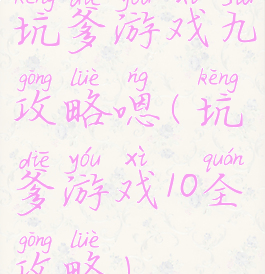 kēng diē yóu xì jiǔ
坑爹游戏九
gōng lüè ńg kēng
攻略嗯(坑
diē yóu xì quán
爹游戏10全
gōng lüè
攻略)